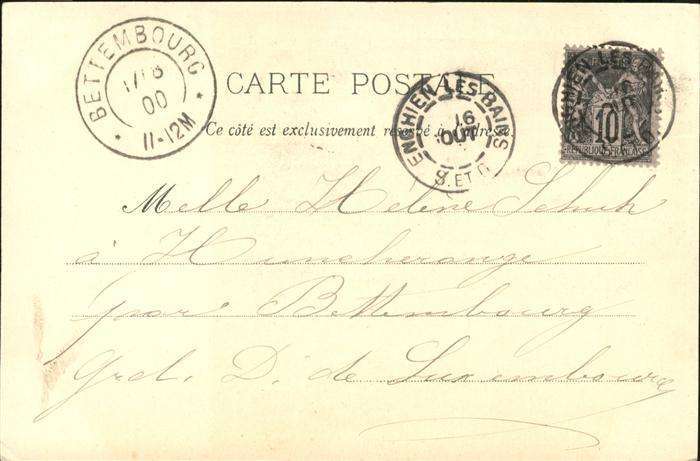 BETTEMBOURG
17/8
00
11-12M
CARTE POSTALE
Ce côté est exclusivement réservé à l'adresse.
ENGHIEN-LES-BAINS
16
OUT
S.ET O.
10
REPUBLIQUE FRANCAISE
Melle Hélène Schuh
à Huncherange
par Bettembourg
Grd. D. de Luxembourg